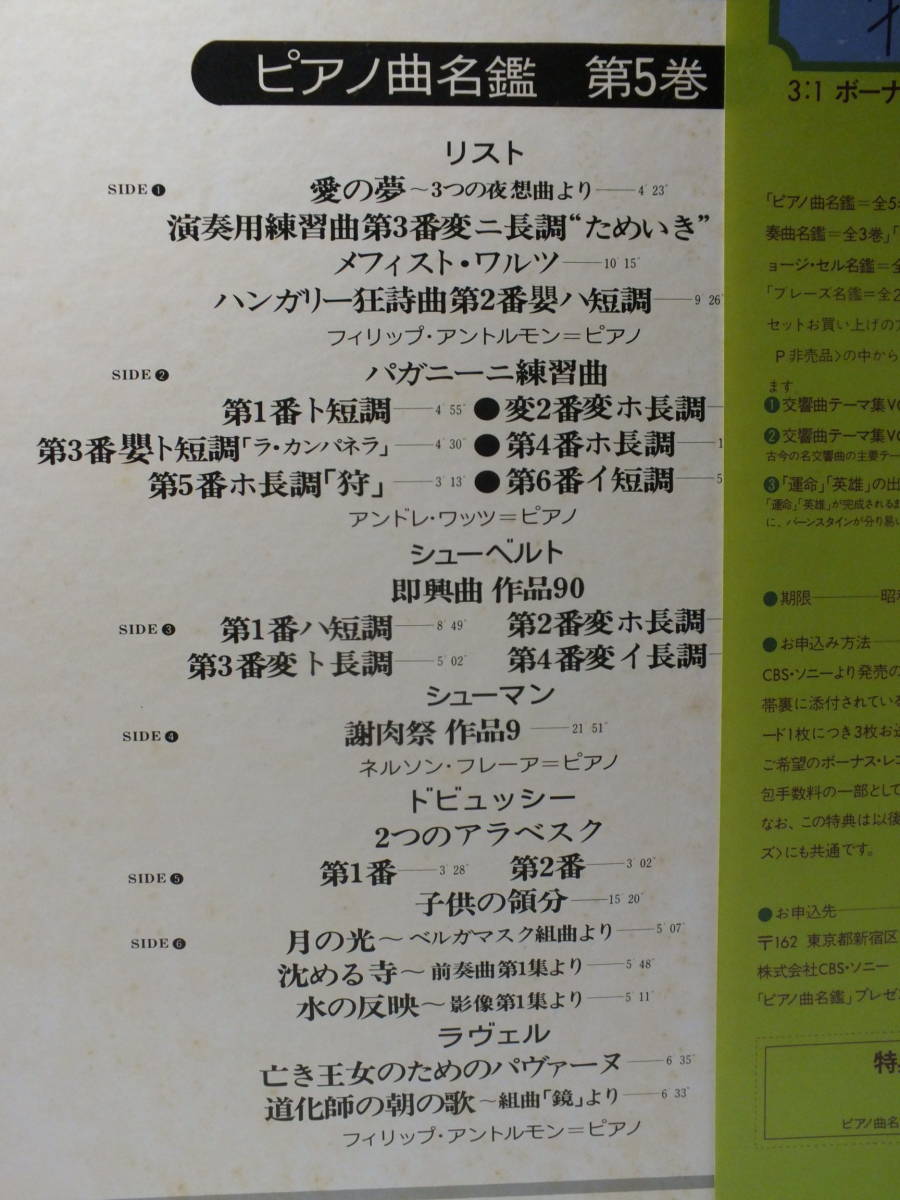 ピアノ曲名鑑 第5巻
リスト
SIDE❶ 愛の夢〜3つの夜想曲より——4′23″
演奏用練習曲第3番変ニ長調“ためいき”
メフィスト・ワルツ——10′15″
ハンガリー狂詩曲第2番嬰ハ短調——9′26″
フィリップ・アントルモン=ピアノ
SIDE❷ パガニーニ練習曲
第1番ト短調——4′55″ ●変2番変ホ長調—
第3番嬰ト短調「ラ・カンパネラ」——4′30″ ●第4番ホ長調—1
第5番ホ長調「狩」——3′13″ ●第6番イ短調—5
アンドレ・ワッツ=ピアノ
シューベルト
即興曲 作品90
SIDE❸ 第1番ハ短調——8′49″ 第2番変ホ長調—
第3番変ト長調——5′02″ 第4番変イ長調—
シューマン
SIDE❹ 謝肉祭 作品9——21′51″
ネルソン・フレーア=ピアノ
ドビュッシー
2つのアラベスク
SIDE❺ 第1番——3′28″ 第2番——3′02″
子供の領分——15′20″
SIDE❻ 月の光〜ベルガマスク組曲より——5′07″
沈める寺〜前奏曲第1集より——5′48″
水の反映〜影像第1集より——5′11″
ラヴェル
亡き王女のためのパヴァーヌ——6′35″
道化師の朝の歌〜組曲「鏡」より——6′33″
フィリップ・アントルモン=ピアノ
3:1 ボーナ
「ピアノ曲名鑑=全5
奏曲名鑑=全3巻」「
ョージ・セル名鑑=全
「ブレーズ名鑑=全2
セットお買い上げの
P非売品〉の中から
ます
❶交響曲テーマ集
❷交響曲テーマ集
古今の名交響曲の主要テー
❸「運命」「英雄」の出
「運命」「英雄」が完成されるま
に、バーンスタインが分り易い
●期限——昭
●お申込み方法—
CBS・ソニーより発売の
帯裏に添付されている
ード1枚につき3枚お送
ご希望のボーナス・レコ
包手数料の一部として
なお、この特典は以後
ズ〉にも共通です。
●お申込先—
〒162 東京都新宿区
株式会社CBS・ソニー
「ピアノ曲名鑑」プレゼ
特
ピアノ曲名